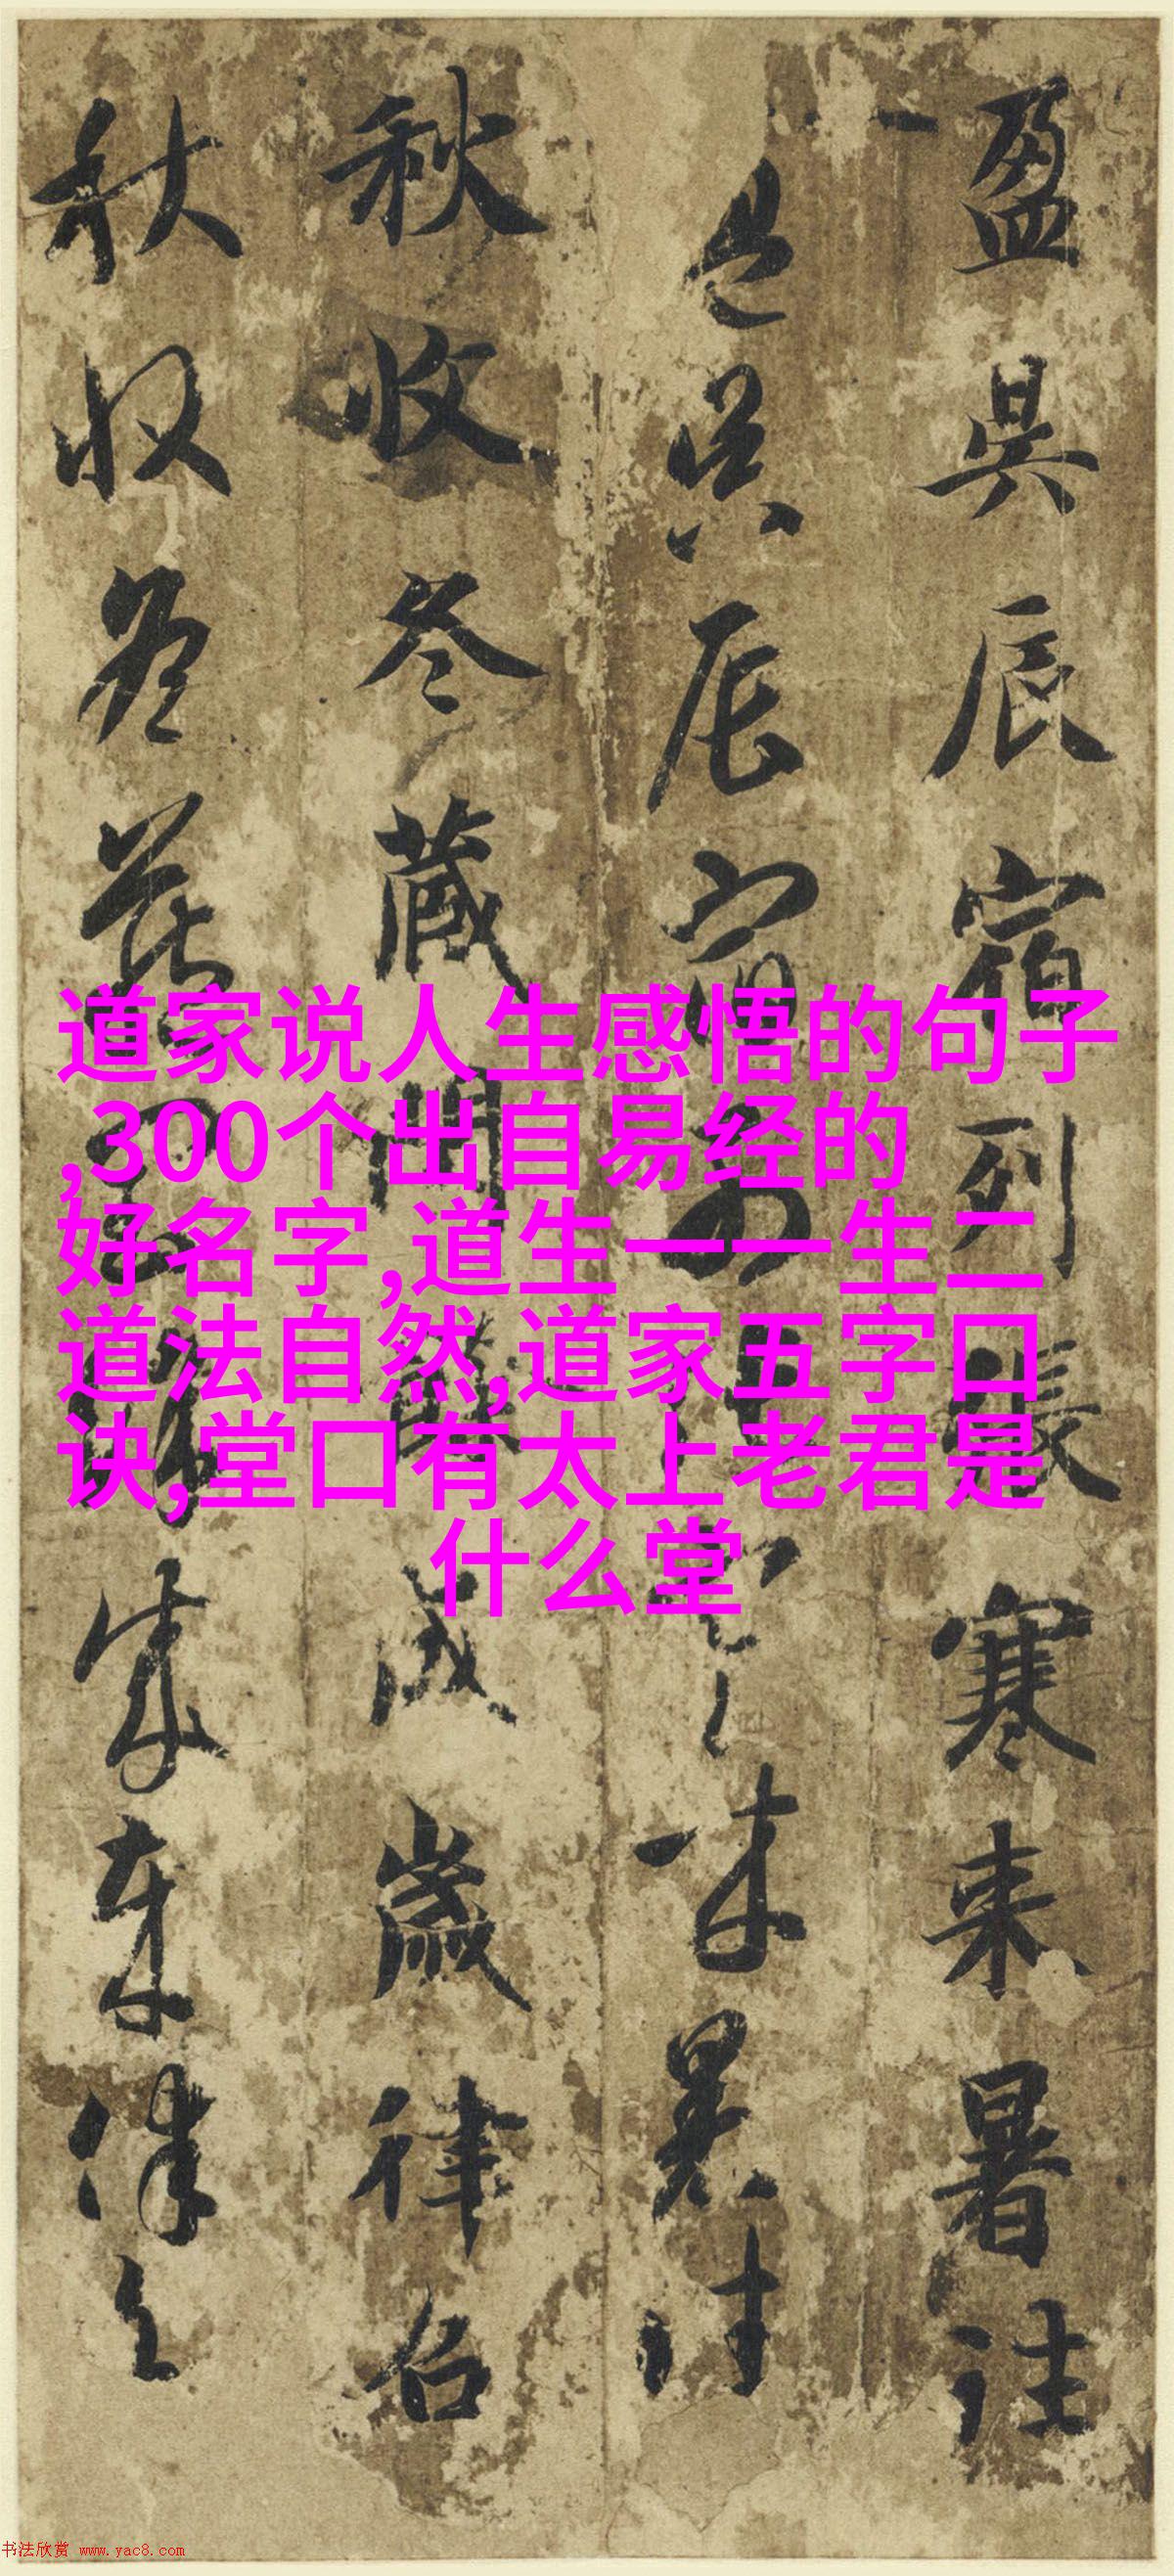 盈昃辰宿列張寒来暑往
盈昃辰宿列張寒来暑往
秋收冬藏閏餘成歲律召
秋收冬藏閏餘成歲律召
道家说人生感悟的句子
,300个出自易经的
好名字,道生一一生二
道法自然,道家五字口
诀,堂口有太上老君是
什么堂
书法欣赏 www.yac8.com